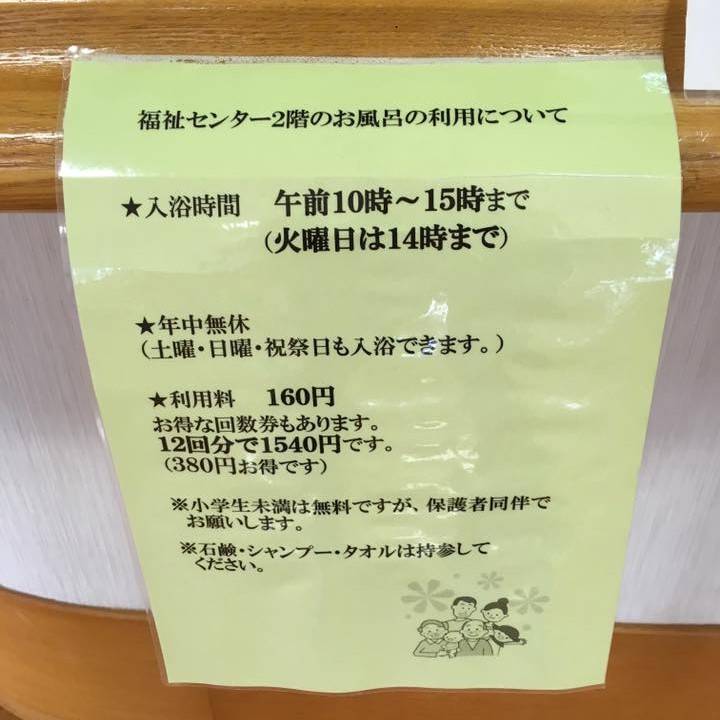 福祉センター2階のお風呂の利用について
★入浴時間 午前10時～15時まで
(火曜日は14時まで)
★年中無休
(土曜・日曜・祝祭日も入浴できます。)
★利用料 160円
お得な回数券もあります。
12回分で1540円です。
(380円お得です)
※小学生未満は無料ですが、保護者同伴で
お願いします。
※石鹸・シャンプー・タオルは持参して
ください。